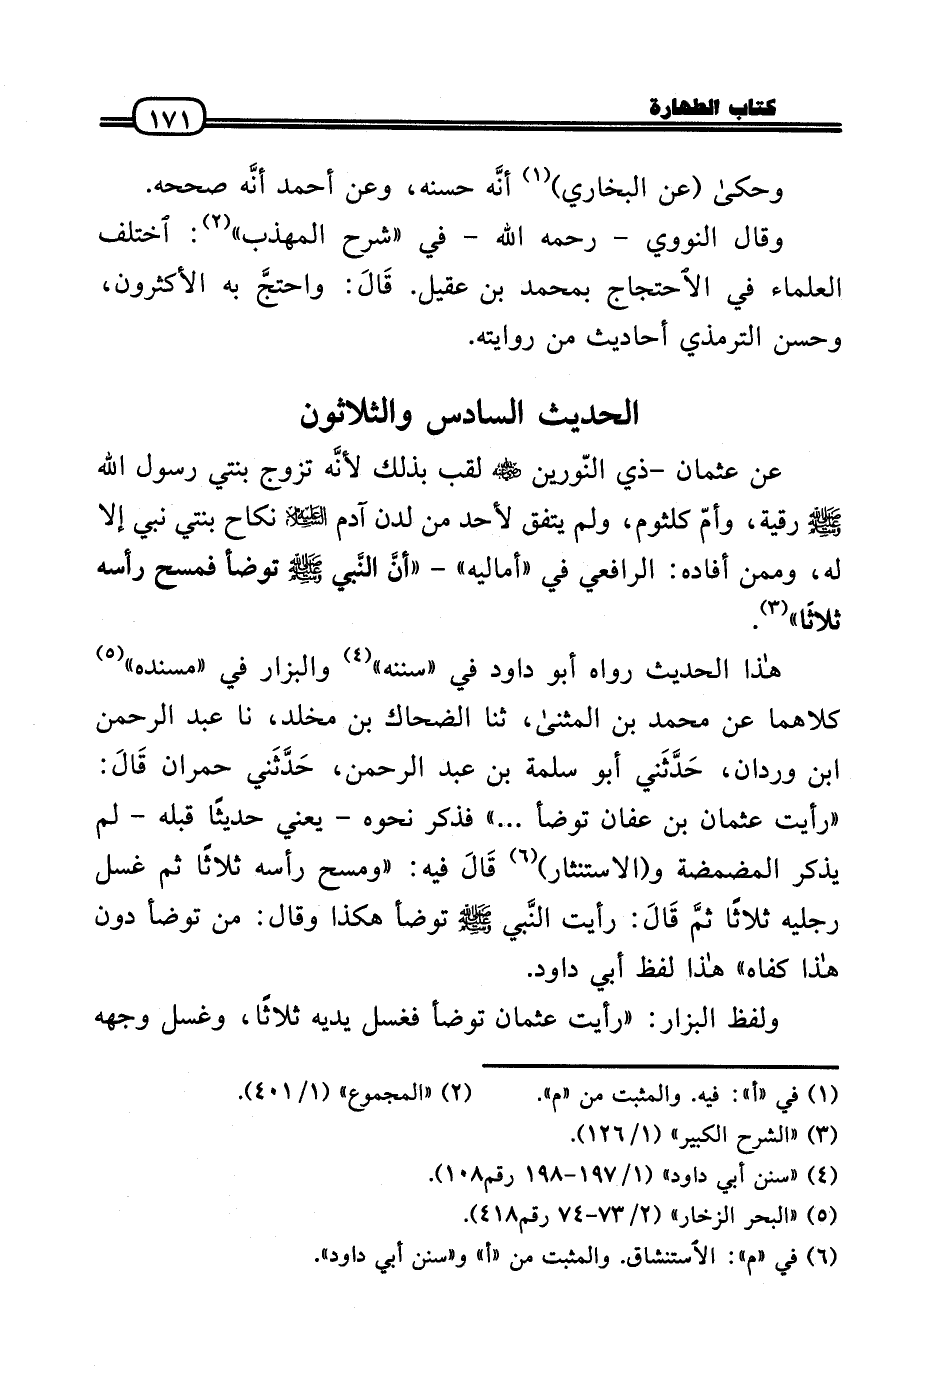 كتاب الطهارة
١٧١
وحكىٰ (عن البخاري)(١) أنَّه حسنه، وعن أحمد أنَّه صححه.
وقال النووي - رحمه الله - في «شرح المهذب»(٢): ٱختلف
العلماء في الٱحتجاج بمحمد بن عقيل. قَالَ: واحتجَّ به الأكثرون،
وحسن الترمذي أحاديث من روايته.
الحديث السادس والثلاثون
عن عثمان -ذي النّورين ﷺ لقب بذلك لأنَّه تزوج بنتي رسول الله
ﷺ رقية، وأمّ كلثوم، ولم يتفق لأحد من لدن آدم العَلَيْهِ السَّلَام نكاح بنتي نبي إلا
له، وممن أفاده: الرافعي في «أماليه» - «أنَّ النَّبي ﷺ توضأ فمسح رأسه
ثلاثًا»(٣).
هٰذا الحديث رواه أبو داود في «سننه»(٤) والبزار في «مسنده»(٥)
كلاهما عن محمد بن المثنىٰ، ثنا الضحاك بن مخلد، نا عبد الرحمن
ابن وردان، حَدَّثَني أبو سلمة بن عبد الرحمن، حَدَّثَني حمران قَالَ:
«رأيت عثمان بن عفان توضأ ...» فذكر نحوه - يعني حديثًا قبله - لم
يذكر المضمضة و(الاستنثار)(٦) قَالَ فيه: «ومسح رأسه ثلاثًا ثم غسل
رجليه ثلاثًا ثمَّ قَالَ: رأيت النَّبي ﷺ توضأ هكذا وقال: من توضأ دون
هٰذا كفاه» هٰذا لفظ أبي داود.
ولفظ البزار: «رأيت عثمان توضأ فغسل يديه ثلاثًا، وغسل وجهه
(١) في «أ»: فيه. والمثبت من «م». (٢) «المجموع» (١/ ٤٠١).
(٣) «الشرح الكبير» (١/ ١٢٦).
(٤) «سنن أبي داود» (١/ ١٩٧-١٩٨ رقم١٠٨).
(٥) «البحر الزخار» (٢/ ٧٣-٧٤ رقم٤١٨).
(٦) في «م»: الٱستنشاق. والمثبت من «أ» و«سنن أبي داود».